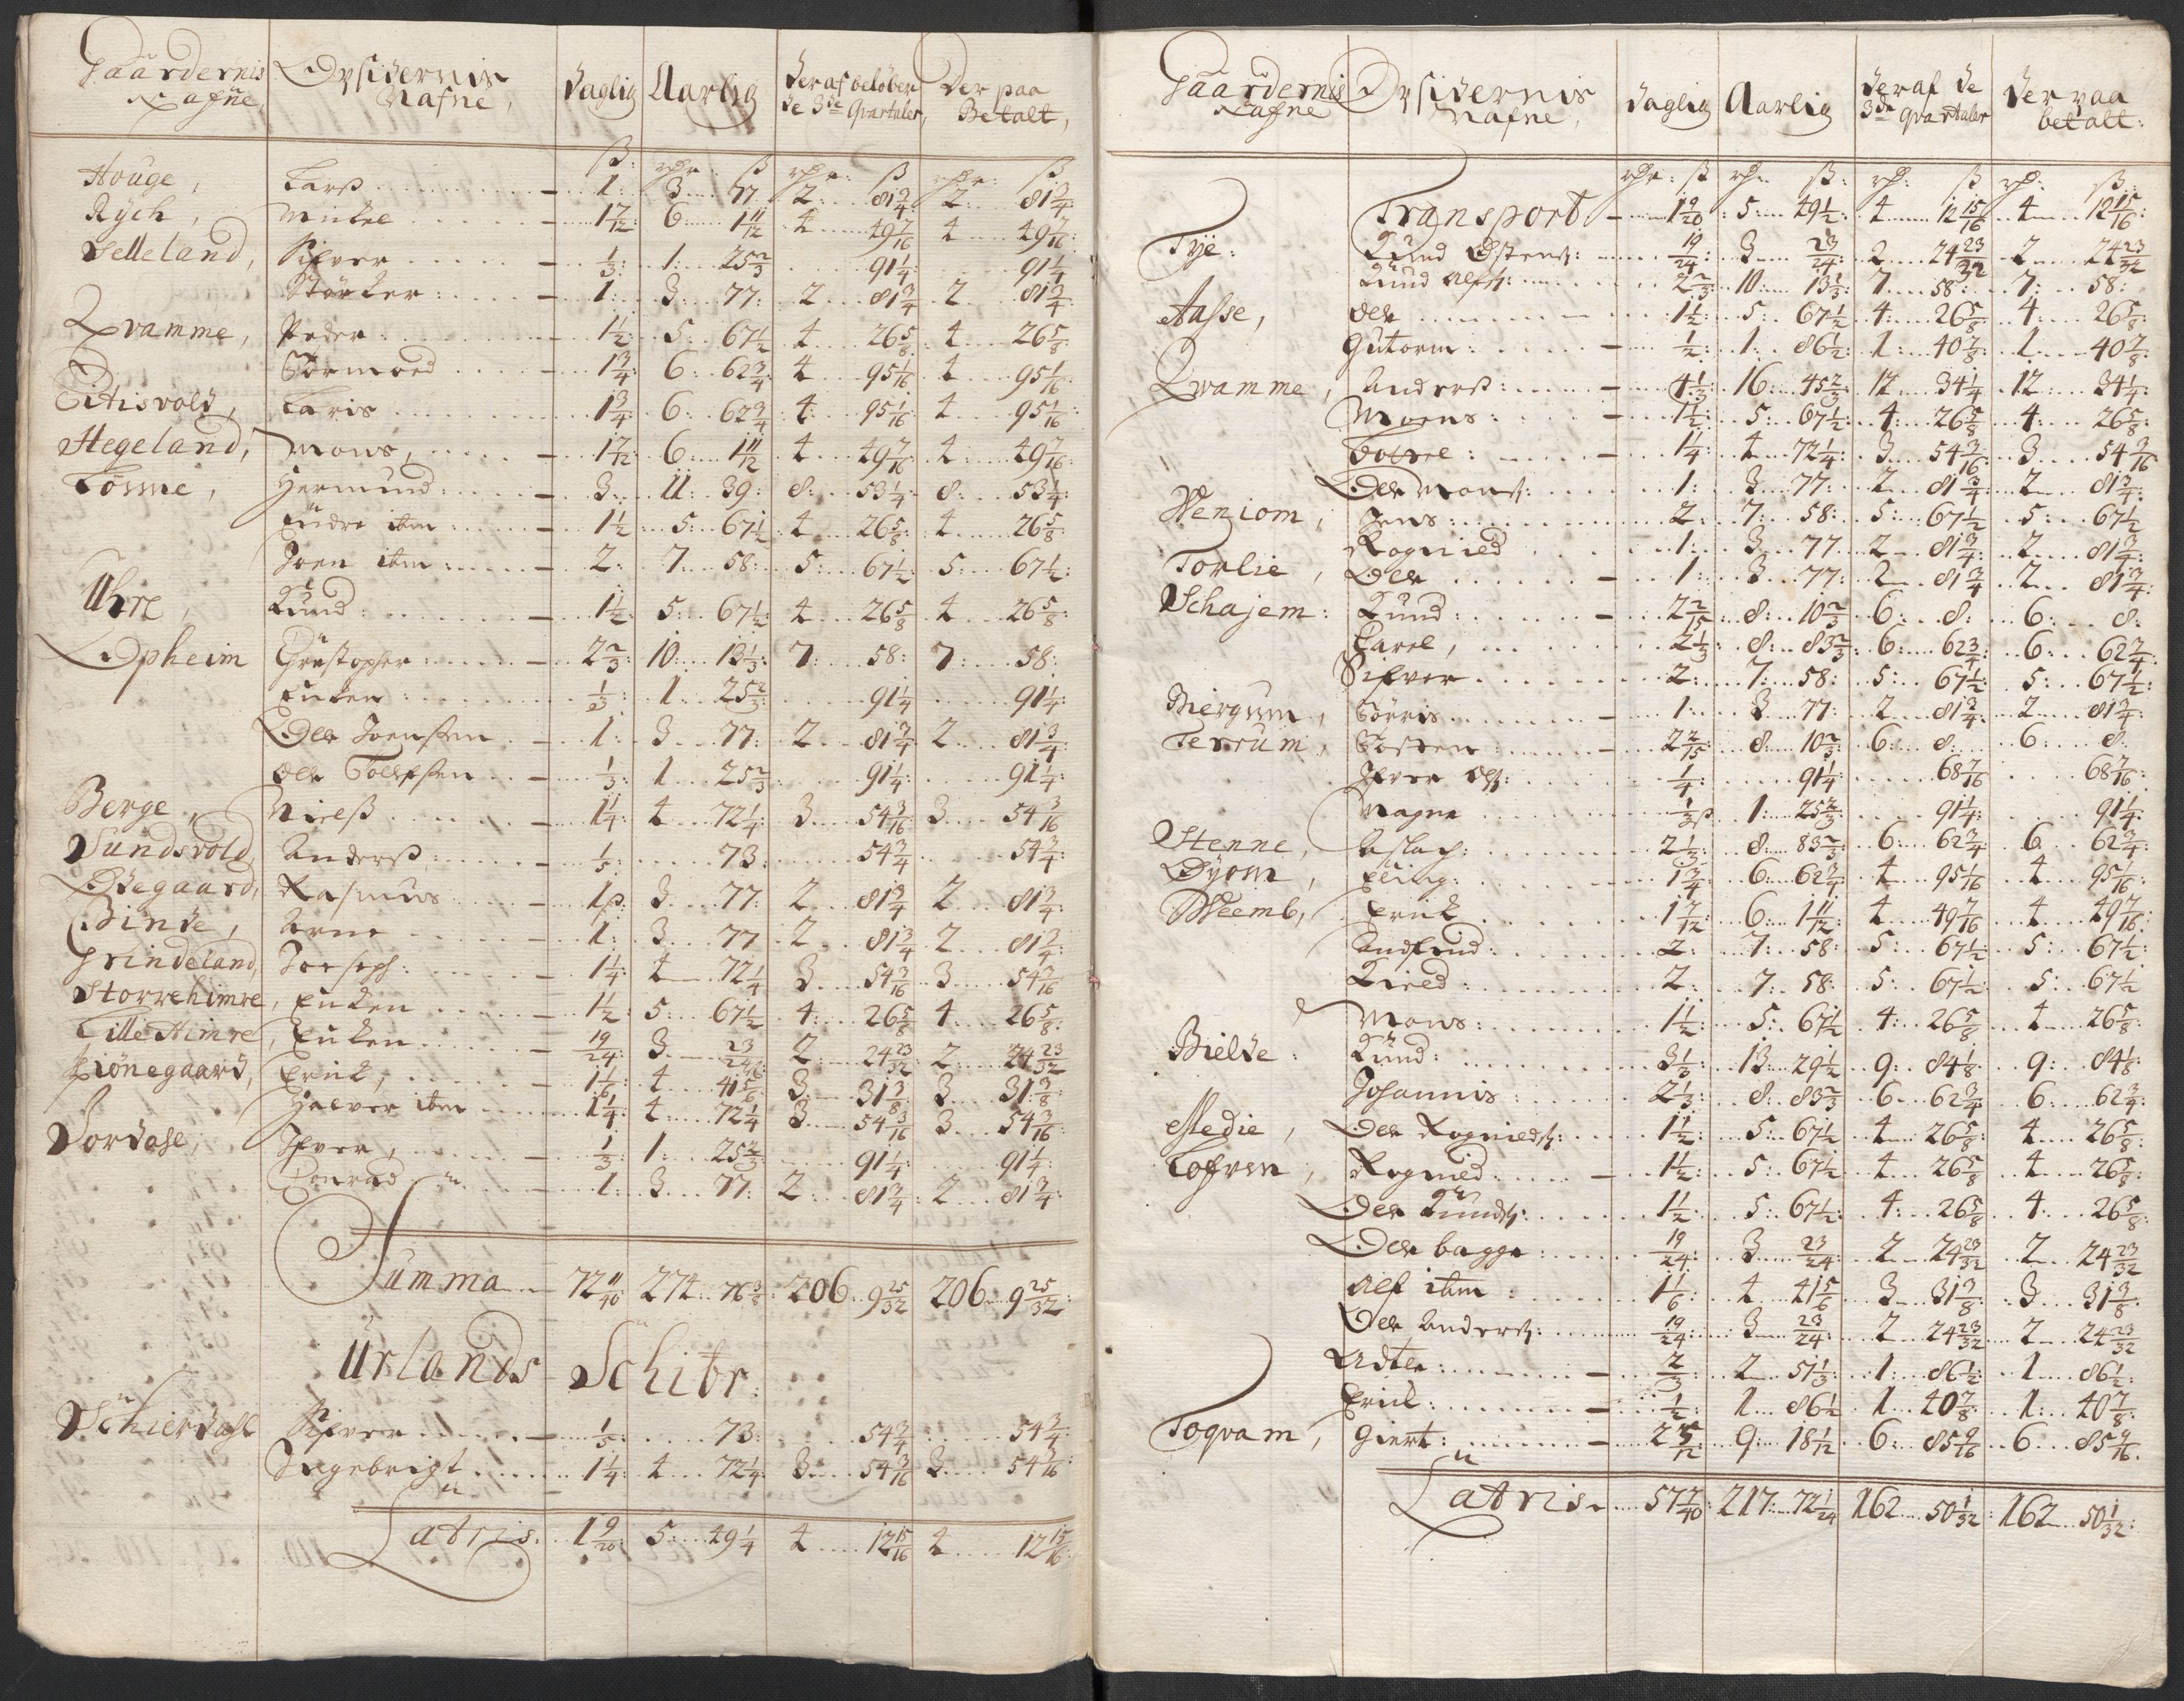 Gaardernis Nafne, Opsidernis Nafne, Daglig Aarlig Deraf beløber de 3de Quartaler, Der paa Betalt,
ß: rdr ß rdr: ß rdr: ß
Houge, Larß 1: 3 77 2: 81 3/4 2: 81 3/4
Rÿch, Mickel 1 7/12 6 1 11/12 4 49 7/16 4 49 7/16
Selleland, Sifver 1/3: 1: 25 2/3 91 1/4 91 1/4
Størcker: 1: 3 77: 2 81 3/4 2 81 3/4
Qvamme, Peder 1 1/2 5: 67 1/2 4 26 5/8 4 26 5/8
Tormoed 1 3/4 6: 62 3/4 4 95 1/16 4 95 1/16
Eitisvold, Laris 1 3/4 6: 62 3/4 4: 95 1/16 4 95 1/16
Hegeland, Mons, 1 7/12 6 1 11/12 4 49 7/16 4: 49 7/16
Tosme, Hermund: 3 11: 39: 8: 53 1/4 8: 53 1/4
Endre ibm 1 1/2 5: 67 1/2 4 26 5/8 4 26 5/8
Joen ibm 2: 7 58: 5: 67 1/2 5: 67 1/2
Uhre, Knud: 1 1/2 5: 67 1/2 4 26 5/8 4 26 5/8
Opheim Christopher 2 2/3: 10 13 1/3 7: 58: 7: 58:
Encken: 1/3: 1 25 2/3 91 1/4 91 1/4
Oele Joensen 1: 3 77: 2 81 3/4 2 81 3/4
Oele Toelfsen 1/3: 1 25 2/3 91 1/4 91 1/4
Berge, Nielß 1 1/4 4 72 1/4 3 54 3/16 3 54 3/16
Sundsvold, Anderß: 1/5: 73: 54 3/4 54 3/4
Ødegaard, Rasmus 1 ß: 3 77: 2 81 3/4 2 81 3/4
Binde, Arne 1: 3 77 2 81 3/4 2 81 3/4
Grindeland, Joeseph: 1 1/4: 4 72 1/4 3 54 3/16 3 54 3/16
Storrehimre, Encken 1 1/2: 5: 67 1/2 4: 26 5/8 4 26 5/8
Lille Himre, Encken 19/24: 3 23/24 2 24 23/32 2: 24 23/32
Kiønegaard, Erick, 1 1/6: 4 41 5/6 3 31 3/8 3 31 3/8
Halvor ibm 1 1/4: 4 72 1/4 3 54 3/16 3 54 3/16
Sordahl, Ifver, 1/3: 1: 25 2/3 91 1/4 91 1/4
Conrad 1: 3 77: 2 81 3/4 2 81 3/4
Summa 72 11/40 274 76 3/8 206 9 25/32 206 9 25/32
Urlands Schibr:
Schierdahl Sifver 1/5: 73: 54 3/4 54 3/4
Ingebrigt 1 1/4: 4 72 1/4 3 54 3/16 3 54 3/16
Latris 1 9/20 5: 49 1/4 4 12 15/16 4 12 15/16
Gaardernis Nafne Opsidernis Nafne, Daglig Aarlig Deraf de 3de Quartaler Der paa betalt:
rdr: ß rdr: ß: rdr: ß rdr: ß:
Transport 1 9/20: 5: 49 1/2 4 12 15/16 4 12 15/16
Tÿe: Knud Østens: 19/24: 3 23/24: 2 24 23/32 2 24 23/32
Knud Olfs: 2 2/3: 10: 13 1/3: 7 58: 7: 58:
Aasse, Oele 1 1/2: 5: 67 1/2 4: 26 5/8 4: 26 5/8
Gutorm: 1/2: 1: 86 1/2: 1: 40 7/8: 1 40 7/8
Qvamme, Anderß: 4 1/3: 16: 45 2/3: 12 34 1/4 12: 34 1/4
Moens: 1 1/2: 5: 67 1/2: 4: 26 5/8 4: 26 5/8
1 1/4: 4 72 1/4: 3 54 3/16: 3 54 3/16
Oele Mons: 1: 3 77: 2 81 3/4: 2 81 3/4
Wenjom, Jens: 2: 7: 58: 5: 67 1/2 5: 67 1/2
Rognied 1: 3 77 2 81 3/4: 2 81 3/4
Torlie, Oele 1: 3 77: 2 81 3/4 2 81 3/4
Schajem: Knud: 2 2/15: 8: 10 2/3 6: 8: 6: 8:
Carel, 2 1/3 8: 83 2/3: 6: 62 3/4: 6: 62 3/4
Sifver 2: 7: 58: 5: 67 1/2: 5: 67 1/2
Biergum, Torris 1: 3 77: 2 81 3/4: 2 81 3/4
Terrum, Torsten: 2 2/15 8: 10 2/3: 6: 8 6: 8:
Ifver Ols: 1/4: 91 1/4: 68 7/16 68 7/16:
Magne 1/3 ß 1: 25 2/3: 91 1/4: 91 1/4:
Stenne, Aslach: 2 1/3: 8: 83 2/3: 6: 62 3/4: 6 62 3/4:
Dÿom, Elling: 1 3/4: 6: 62 3/4 4 95 1/16 4 95 1/16
Weemb, Erick 1 7/12: 6: 1 11/12 4 49 7/16 4 49 7/16
Andfind: 2: 7: 58: 5: 67 1/2 5: 67 1/2
Kield: 2: 7: 58: 5: 67 1/2 5: 67 1/2
Mons: 1 1/2 5: 67 1/2 4: 26 5/8 4 26 5/8
Bielde: Knud: 3 1/3: 13: 29 1/2 9: 84 1/8 9: 84 1/8
Johannis: 2 1/3: 8: 83 2/3 6: 62 3/4: 6: 62 3/4:
Medie, Oele Rognields: 1 1/2: 5: 67 1/2 4 26 5/8: 4 26 5/8
Tofven, Rognied 1 1/2: 5: 67 1/2 4 26 5/8 4 26 5/8:
Oele Knuds: 1 1/2 5: 67 1/2: 4: 26 5/8 4: 26 5/8:
Oele bagge: 19/24: 3 23/24: 2 24 23/32 2 24 23/32
Olf ibm: 1 1/6: 4 41 5/6 3 31 3/8 3 31 3/8
Oele Anders: 19/24: 3 23/24: 2 24 23/32 2 24 23/32
Adtle: 2/3: 2 51 1/3: 1: 86 1/2: 1 86 1/2:
Erick: 1/2: 1 86 1/2 1 40 7/8 1: 40 7/8
Toqvam, Giert: 2 5/12 9: 18 1/12 6: 85 9/16 6 85 9/16:
Latris 57 7/40: 217: 72 1/24 162 50 1/32: 162 50 1/32: